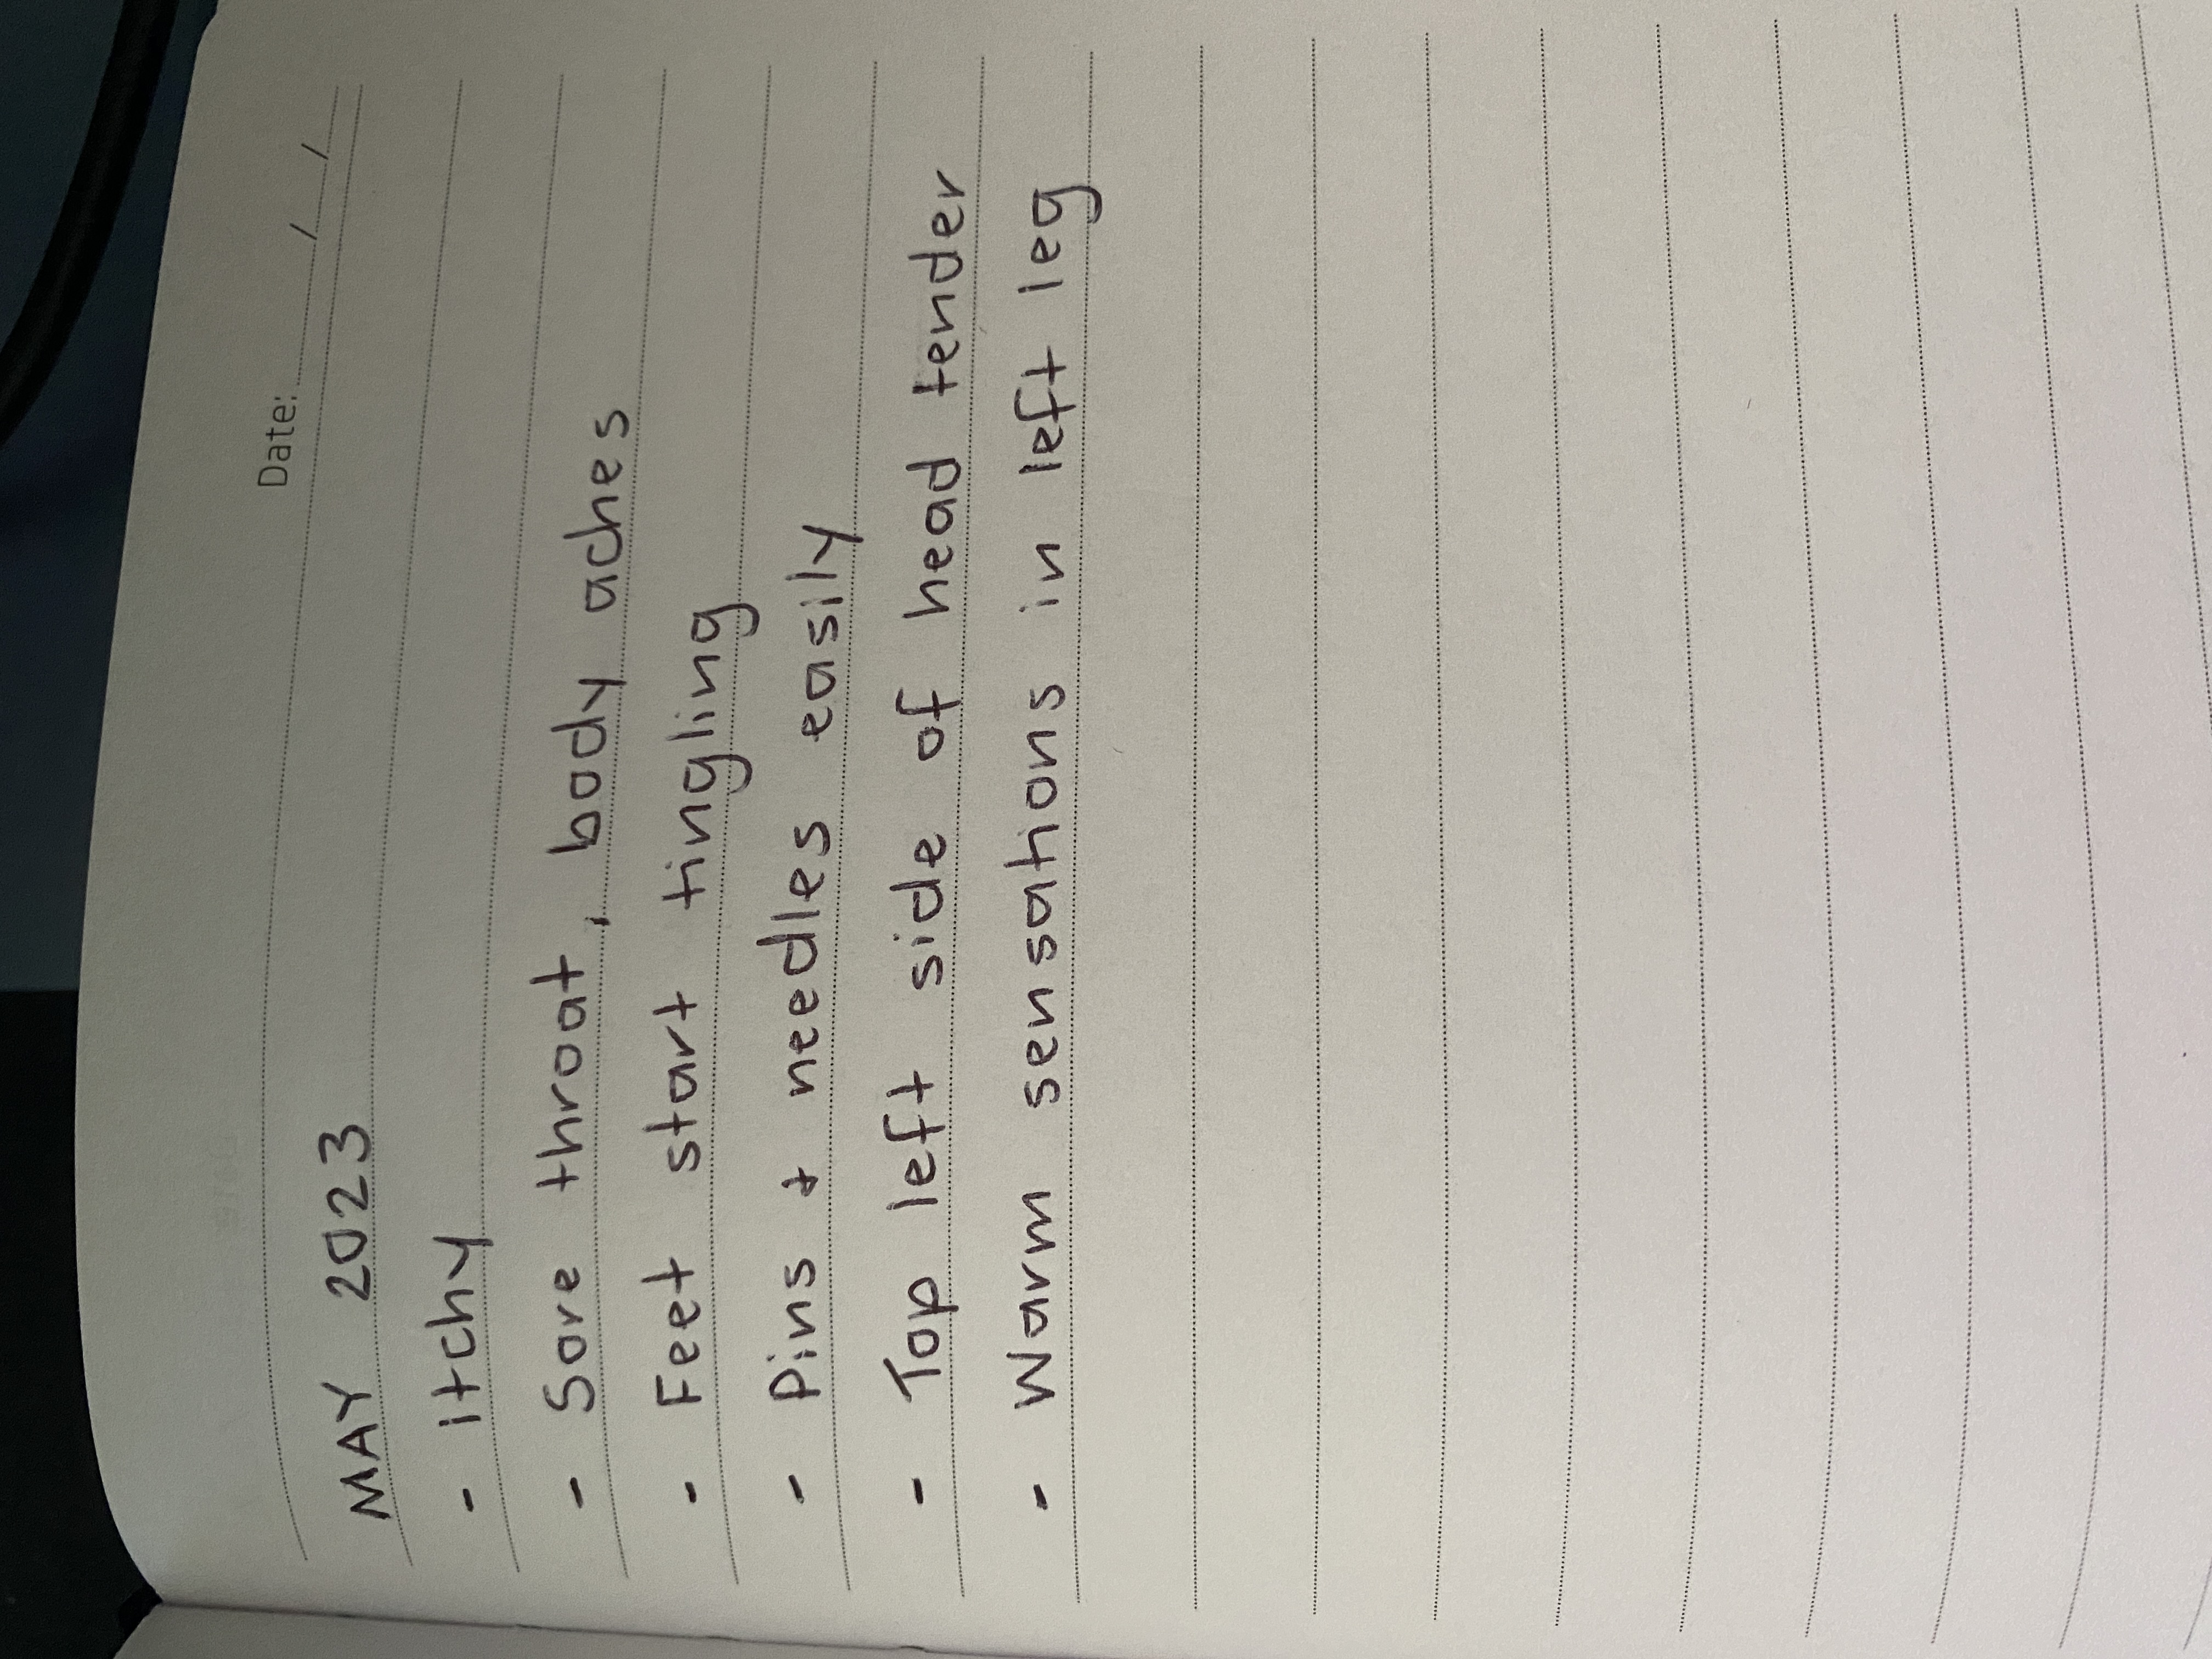 Date: / /
MAY 2023
- Itchy
- Sore throat, body aches
- Feet start tingling
- Pins + needles easily
- Top left side of head tender
- Warm sensations in left leg